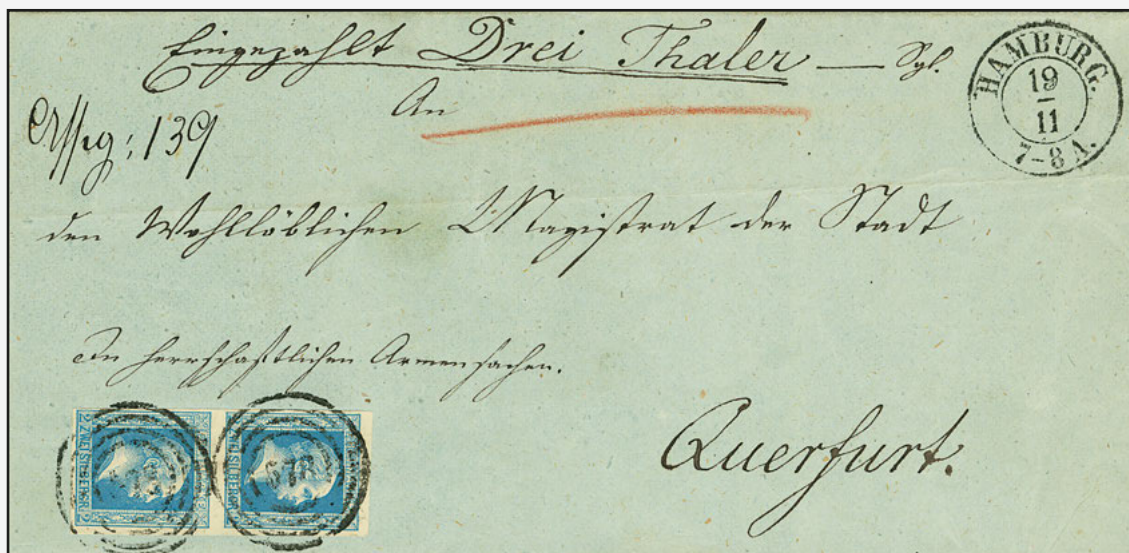 Eingezahlt Drei Thaler — Sgl.
HAMBURG.
19
11
7-8 A.
An
139
den Wohllöblichen Magistrat der Stadt
In herrschaftlichen Armensachen.
Querfurt.
2 ZWEI SILBERGR. 2